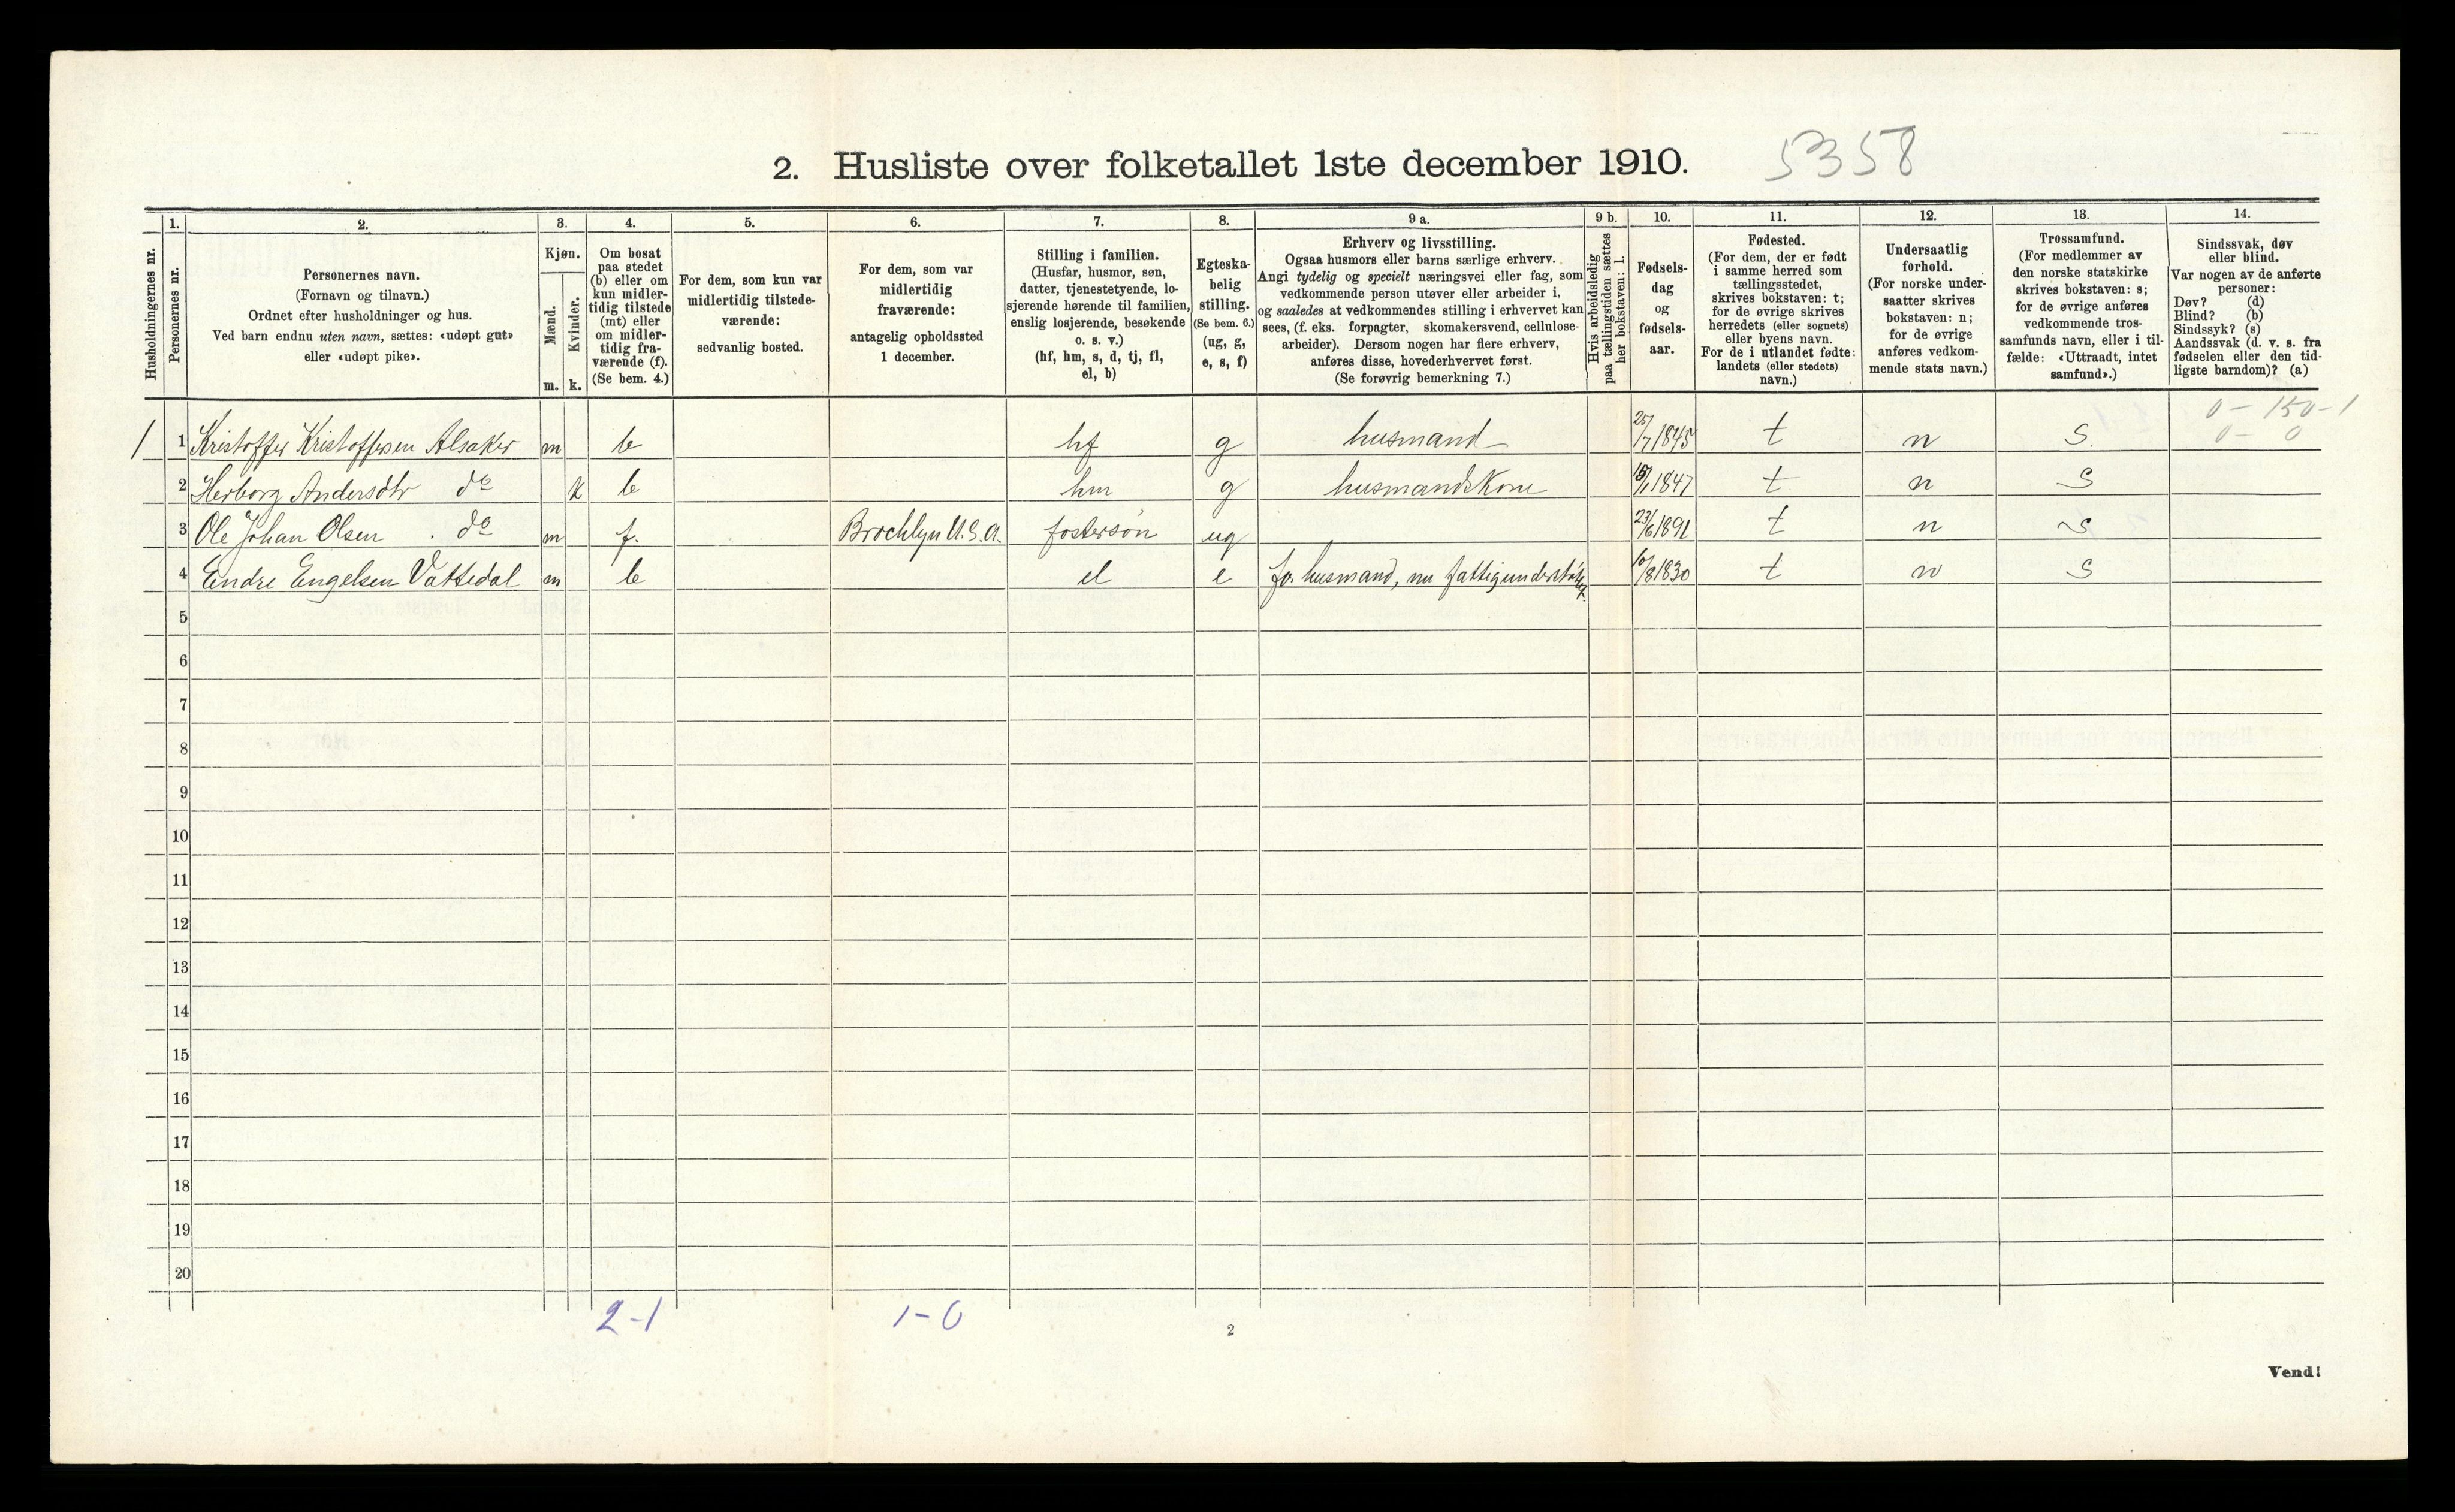 2. Husliste over folketallet 1ste december 1910. 5358
Husholdningernes nr.
1.
Personernes nr.
2.
Personernes navn.
(Fornavn og tilnavn.)
Ordnet efter husholdninger og hus.
Ved barn endnu uten navn, sættes: «udøpt gut»
eller «udøpt pike».
3.
Kjøn.
Mænd.
m.
Kvinder.
k.
4.
Om bosat
paa stedet
(b) eller om
kun midler-
tidig tilstede
(mt) eller
om midler-
tidig fra-
værende (f).
(Se bem. 4.)
5.
For dem, som kun var
midlertidig tilstede-
værende:
sedvanlig bosted.
6.
For dem, som var
midlertidig
fraværende:
antagelig opholdssted
1 december.
7.
Stilling i familien.
(Husfar, husmor, søn,
datter, tjenestetyende, lo-
sjerende hørende til familien,
enslig losjerende, besøkende
o. s. v.)
(hf, hm, s, d, tj, fl,
el, b)
8.
Egteska-
belig
stilling.
(Se bem. 6.)
(ug, g,
e, s, f)
9 a.
Erhverv og livsstilling.
Ogsaa husmors eller barns særlige erhverv.
Angi tydelig og specielt næringsvei eller fag, som
vedkommende person utøver eller arbeider i,
og saaledes at vedkommendes stilling i erhvervet kan
sees, (f. eks. forpagter, skomakersvend, cellulose-
arbeider). Dersom nogen har flere erhverv,
anføres disse, hovederhvervet først.
(Se forøvrig bemerkning 7.)
9 b.
Hvis arbeidsledig
paa tællingstiden sættes
her bokstaven: l.
10.
Fødsels-
dag
og
fødsels-
aar.
11.
Fødested.
(For dem, der er født
i samme herred som
tællingsstedet,
skrives bokstaven: t;
for de øvrige skrives
herredets (eller sognets)
eller byens navn.
For de i utlandet fødte:
landets (eller stedets)
navn.)
12.
Undersaatlig
forhold.
(For norske under-
saatter skrives
bokstaven: n;
for de øvrige
anføres vedkom-
mende stats navn.)
13.
Trossamfund.
(For medlemmer av
den norske statskirke
skrives bokstaven: s;
for de øvrige anføres
vedkommende tros-
samfunds navn, eller i til-
fælde: «Uttraadt, intet
samfund».)
14.
Sindssvak, døv
eller blind.
Var nogen av de anførte
personer:
Døv? (d)
Blind? (b)
Sindssyk? (s)
Aandssvak (d. v. s. fra
fødselen eller den tid-
ligste barndom)? (a)
0 - 150 - 1
0 - 0
1 1 Kristoffer Kristoffersen Alsaker m b hf g husmand 25/7 1845 t n s.
2 Herborg Andersdtr do k b hm g husmandskone /1 1847 t n s
3 Ole Johan Olsen do m f. Brochlyn U.S.A. fostersøn ug 23/6 1891 t n s
4 Endre Engelsen Vattedal m b el e fv. husmand, nu fattigunderstøttet 10/8 1830 t n s
5
6
7
8
9
10
11
12
13
14
15
16
17
18
19
20
2-1 1-0
2
Vend!